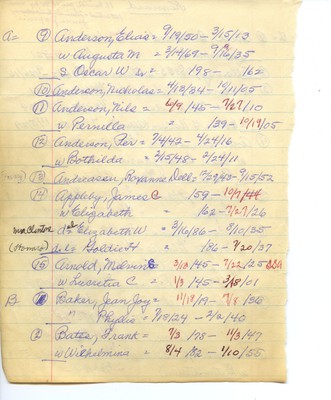 A= (9) Anderson, Elias = 9/19/50 - 3/15/13
w Augusta M = 2/14/69 - 9/16/35
s Oscar W = 198 - 162
(10) Anderson, Nicholas = 4/12/34 - 10/11/05
(11) Anderson, Nils = 6/9/45 - 7/27/10
w Pernilla = 39 - 10/19/05
(12) Anderson, Per = 7/4/42 - 4/24/16
w Bothilda = 7/15/48 - 2/24/11
(13) Andreason, Roxanne Dell = 7/29/43 - 9/15/52
(14) Appleby, James C 159 - 10/7/44
w Elizabeth = 162 - 7/27/26
Mrs Clinton d Elizabeth W = 3/16/86 - 9/10/35
(Homer) Goldie H = 186 - 7/20/37
(15) Arnold, Melvin E 3/13/45 - 7/22/25
w Lucretia C. = 1/3/45 - 3/18/01
B= Baker, Jean Joy = 11/18/19 - 7/8/36
" Phyllis = 9/13/24 - 2/2/40
(2) Bates, Frank = 7/3/78 - 11/3/47
w Wilhelmina = 8/4/82 - 1/10/55